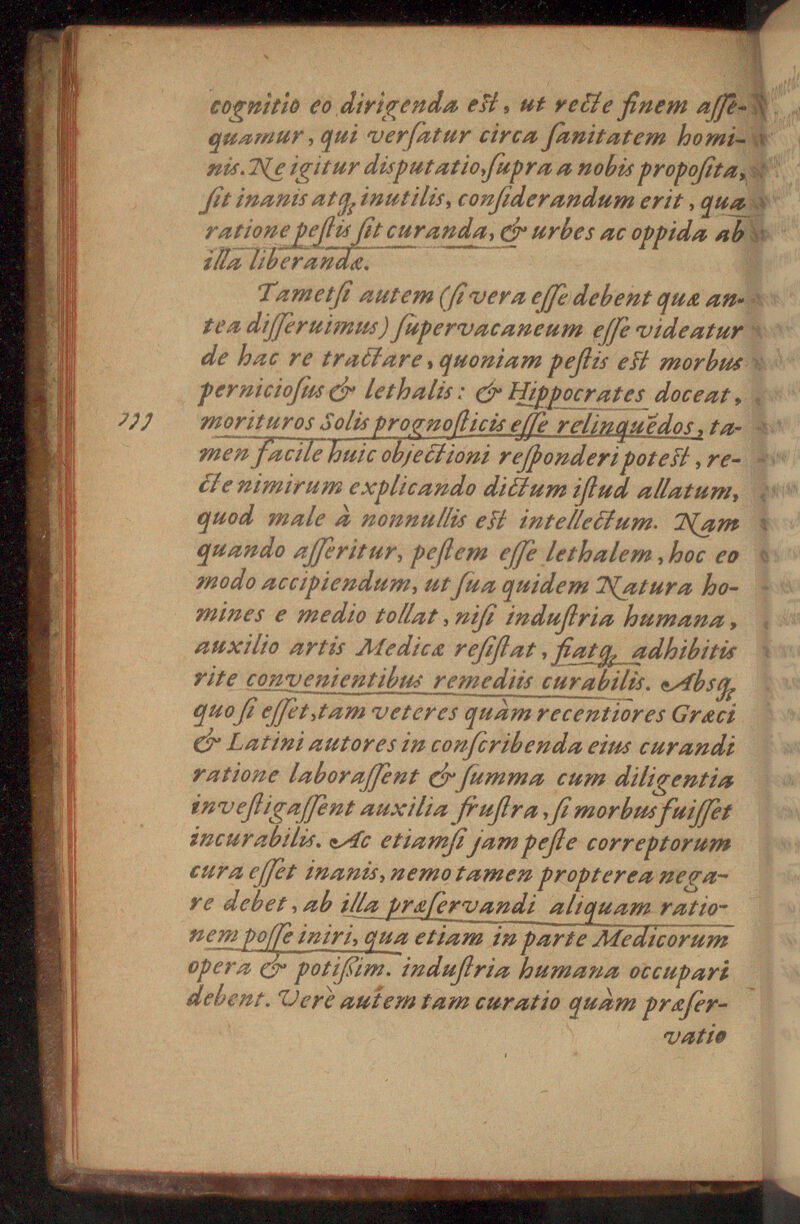 cognitio eo dirigenda est, ut recte finem asse-
quamur, qui versatur circa sanitatem homi-
nis. Ne igitur disputatio, supra a nobis proposita,
sit inanis atq; inutilis, considerandum erit, qua
ratione pestis sit curanda, & urbes ac oppida ab
illa liberandæ.
Tametsi autem (si vera esse debent quæ an-
tea disseruimus) supervacaneum esse videatur
de hac re tractare, quoniam pestis est morbus
perniciosus & lethalis: & Hippocrates doceat,
morituros Solis prognosticis esse relinquẽdos, ta-
men facile huic objectioni responderi potest, re-
cte nimirum explicando dictum istud allatum,
quod male à nonnullis est intellectum. Nam
quando asseritur, pestem esse lethalem, hoc eo
modo accipiendum, ut sua quidem Natura ho-
mines e medio tollat, nisi industria humana,
auxilio artis Medicæ resistat, fiatq; adhibitis
rite convenientibus remediis curabilis. Absq;
quo si esset, tam veteres quàm recentiores Græci
& Latini autores in conscribenda eius curandi
ratione laborassent & summa cum diligentia
investigassent auxilia frustra, si morbus fuisset
incurabilis. Ac etiamsi jam peste correptorum
cura esset inanis, nemo tamen propterea nega-
re debet, ab illa præservandi aliquam ratio-
nem posse iniri, qua etiam in parte Medicorum
opera & potissim. industria humana occupari
debent. Verè autem tam curatio quàm præser-
vatio